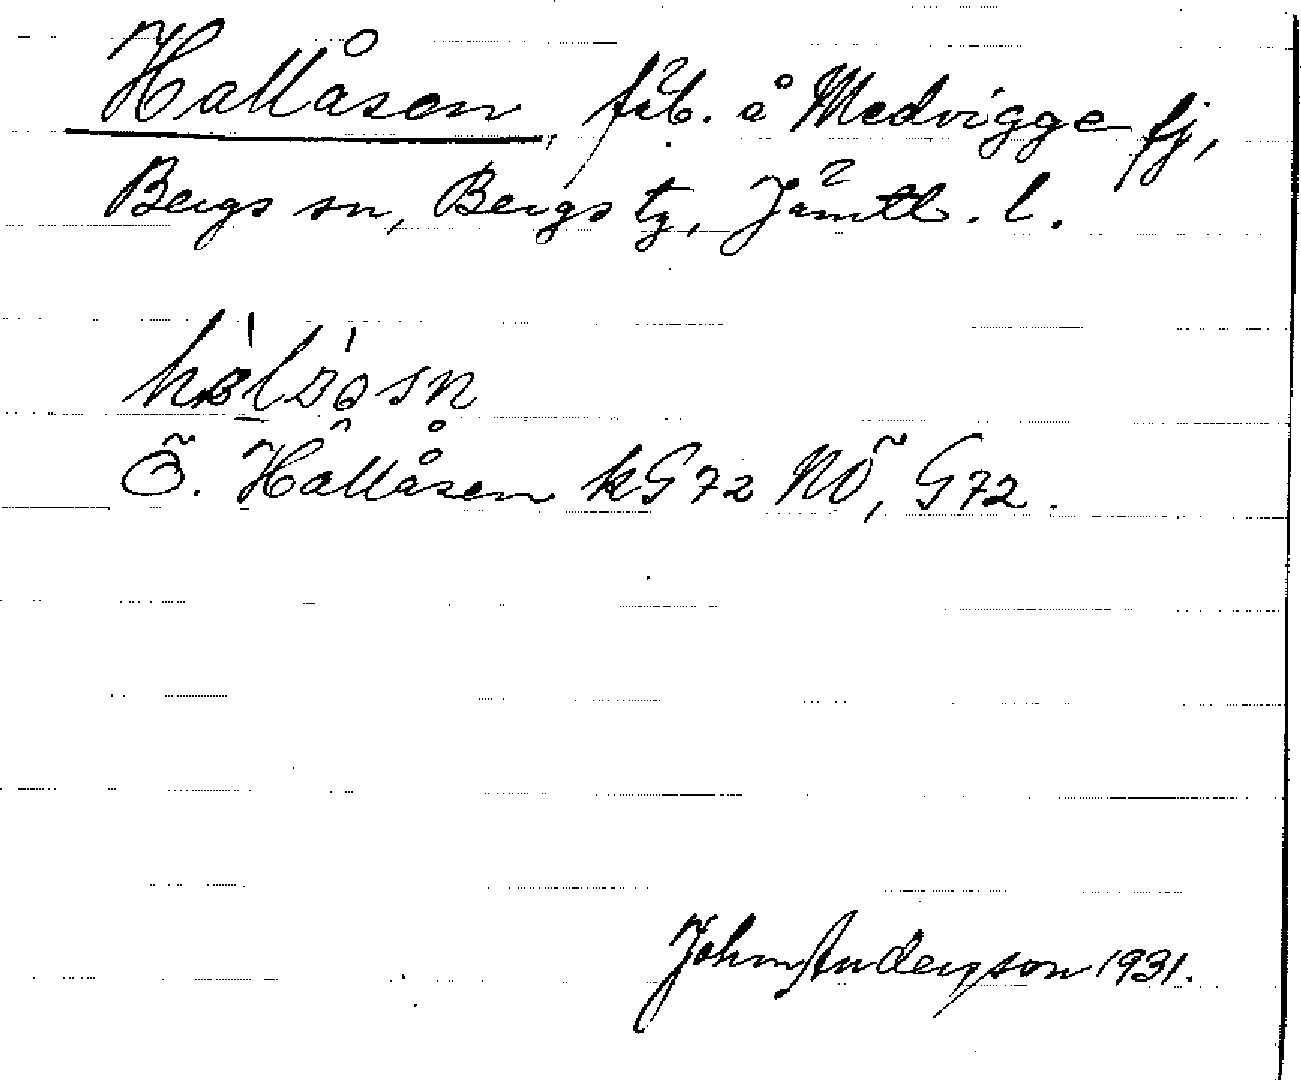 Hallåsen, fäb. å Medvigge fj,
Bergs sn, Bergs tg, Jämtl. l.
Õ. Hâllåsen kG72 NÖ, G72.
John Anderson 1931.